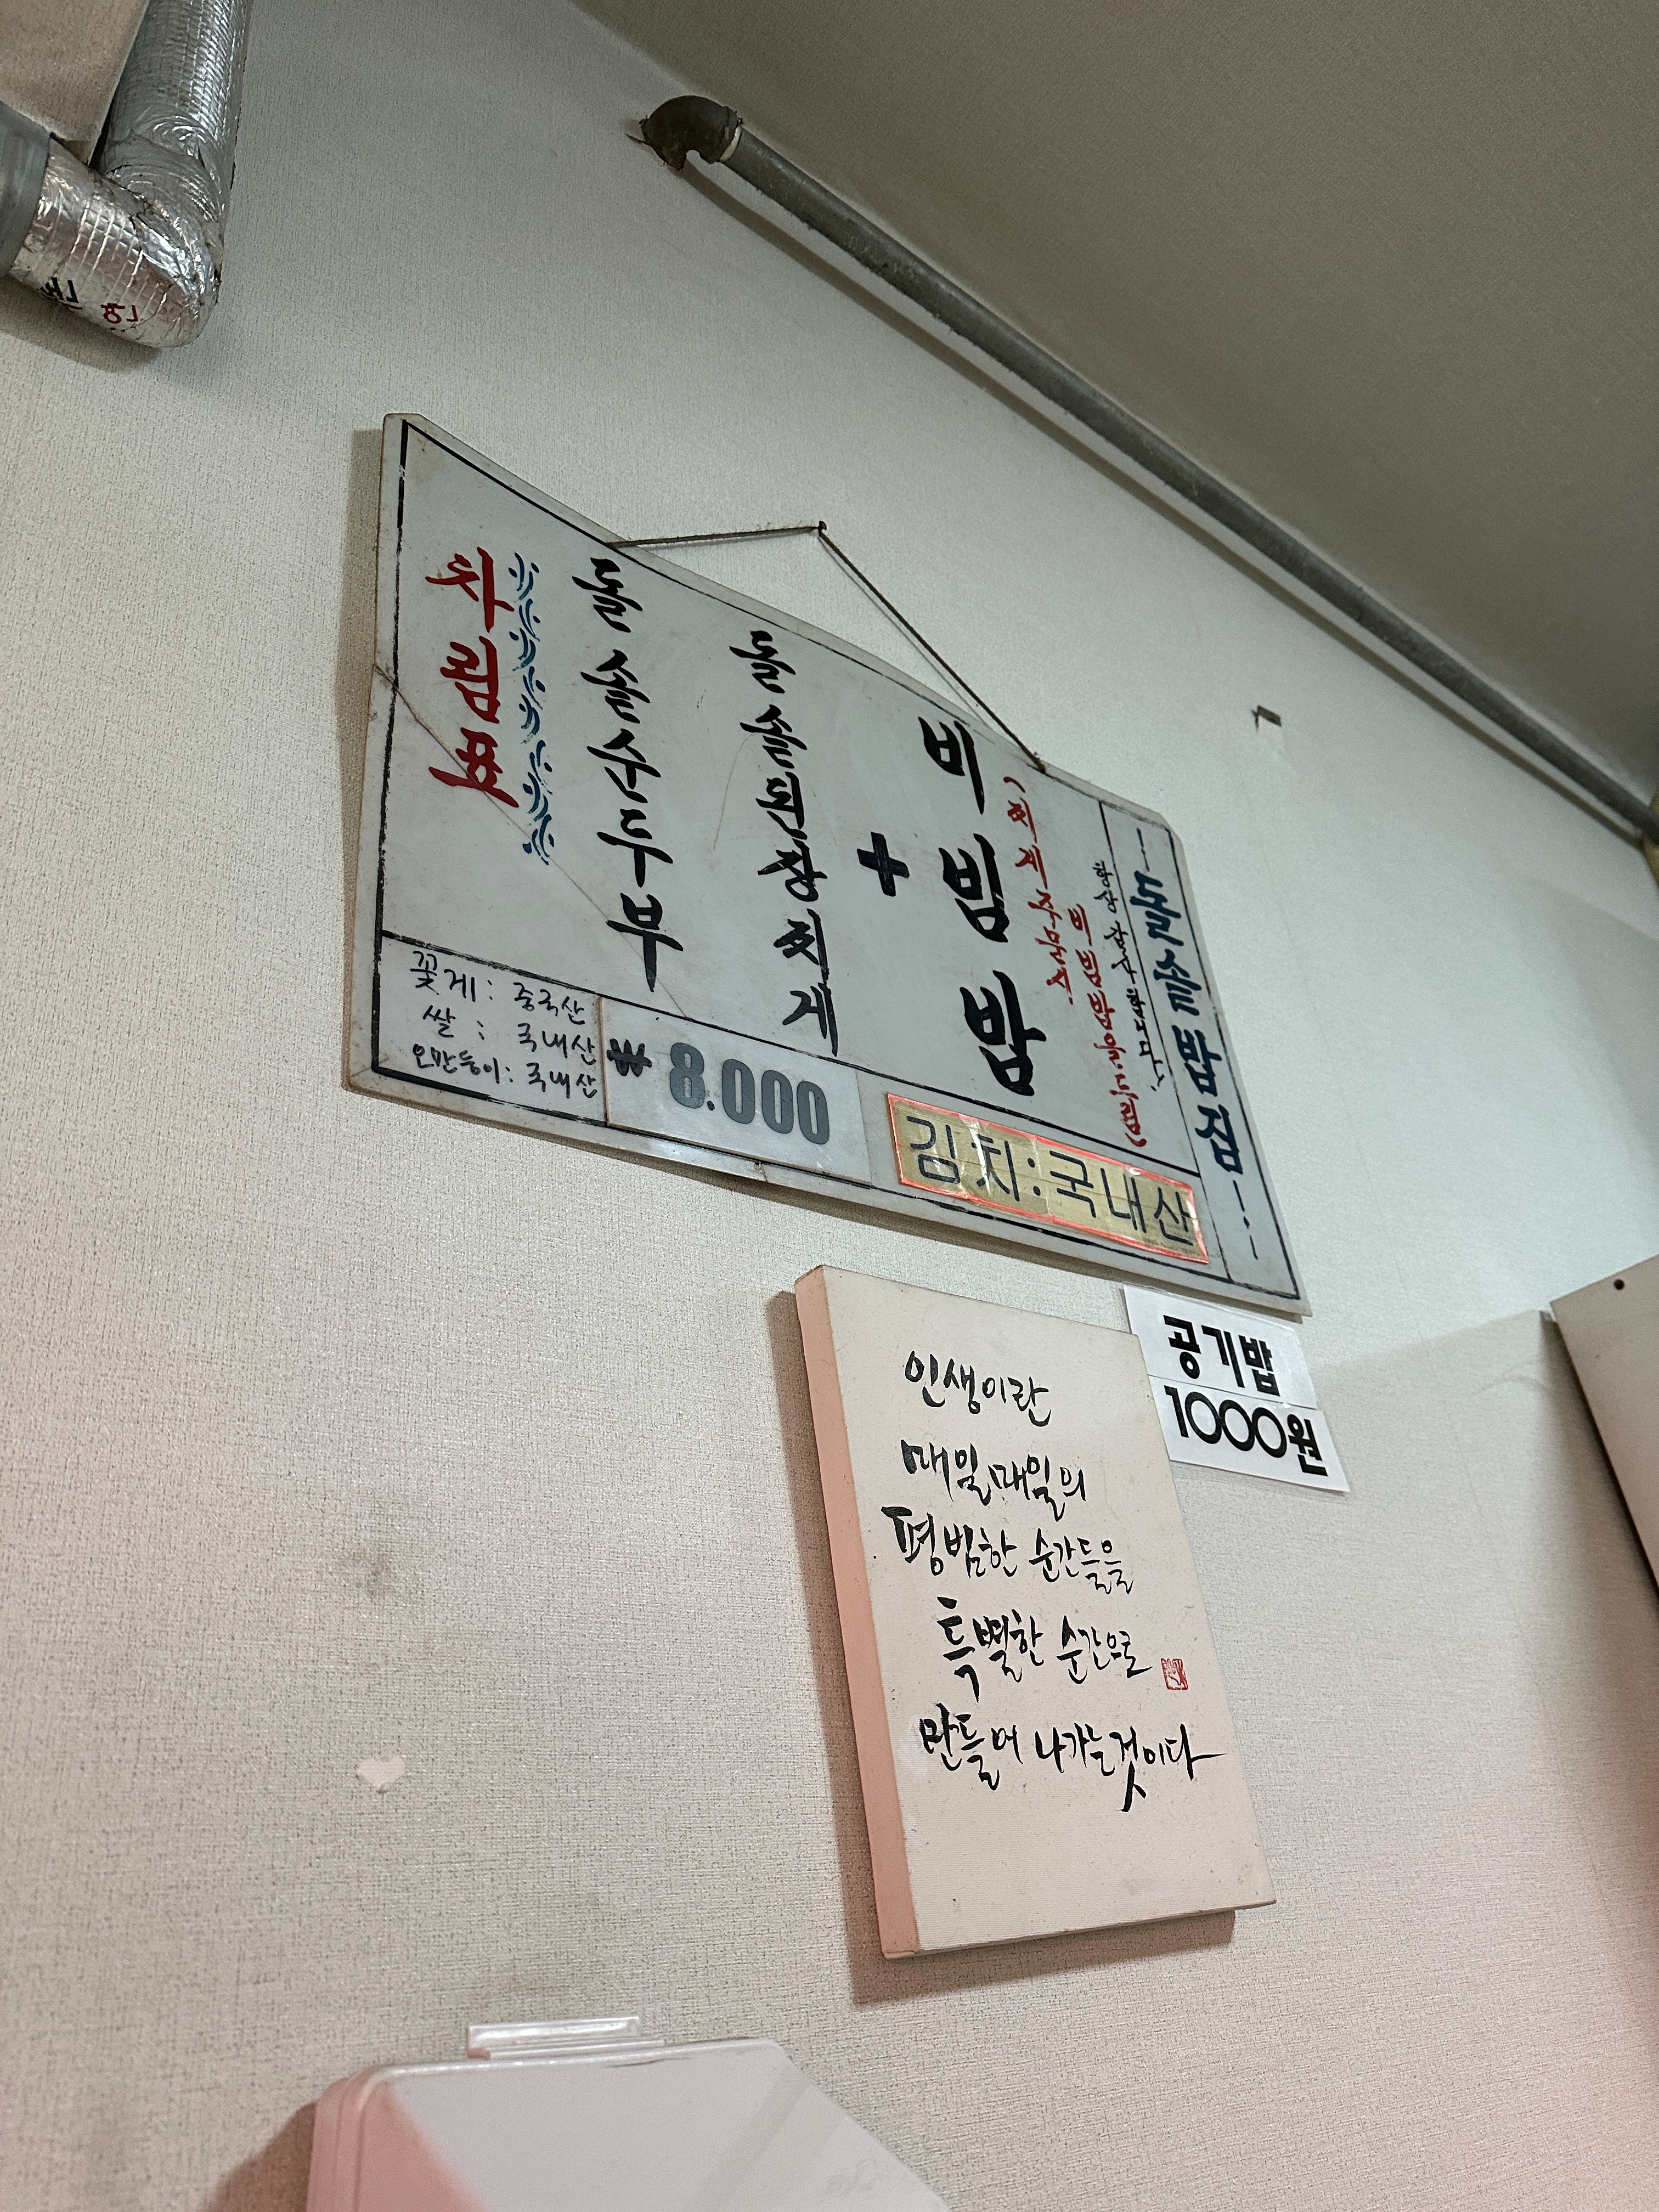 차림표
돌솥순두부
돌솥된장찌개
+
비빔밥
(찌개 주문시
비빔밥
돌솥밥집
꽃게: 중국산
쌀: 국내산
오만둥이: 국내산
₩ 8.000
김치:국내산
공기밥
1000원
인생이란
매일매일의
평범한 순간들을
특별한 순간으로
만들어 나가는것이다